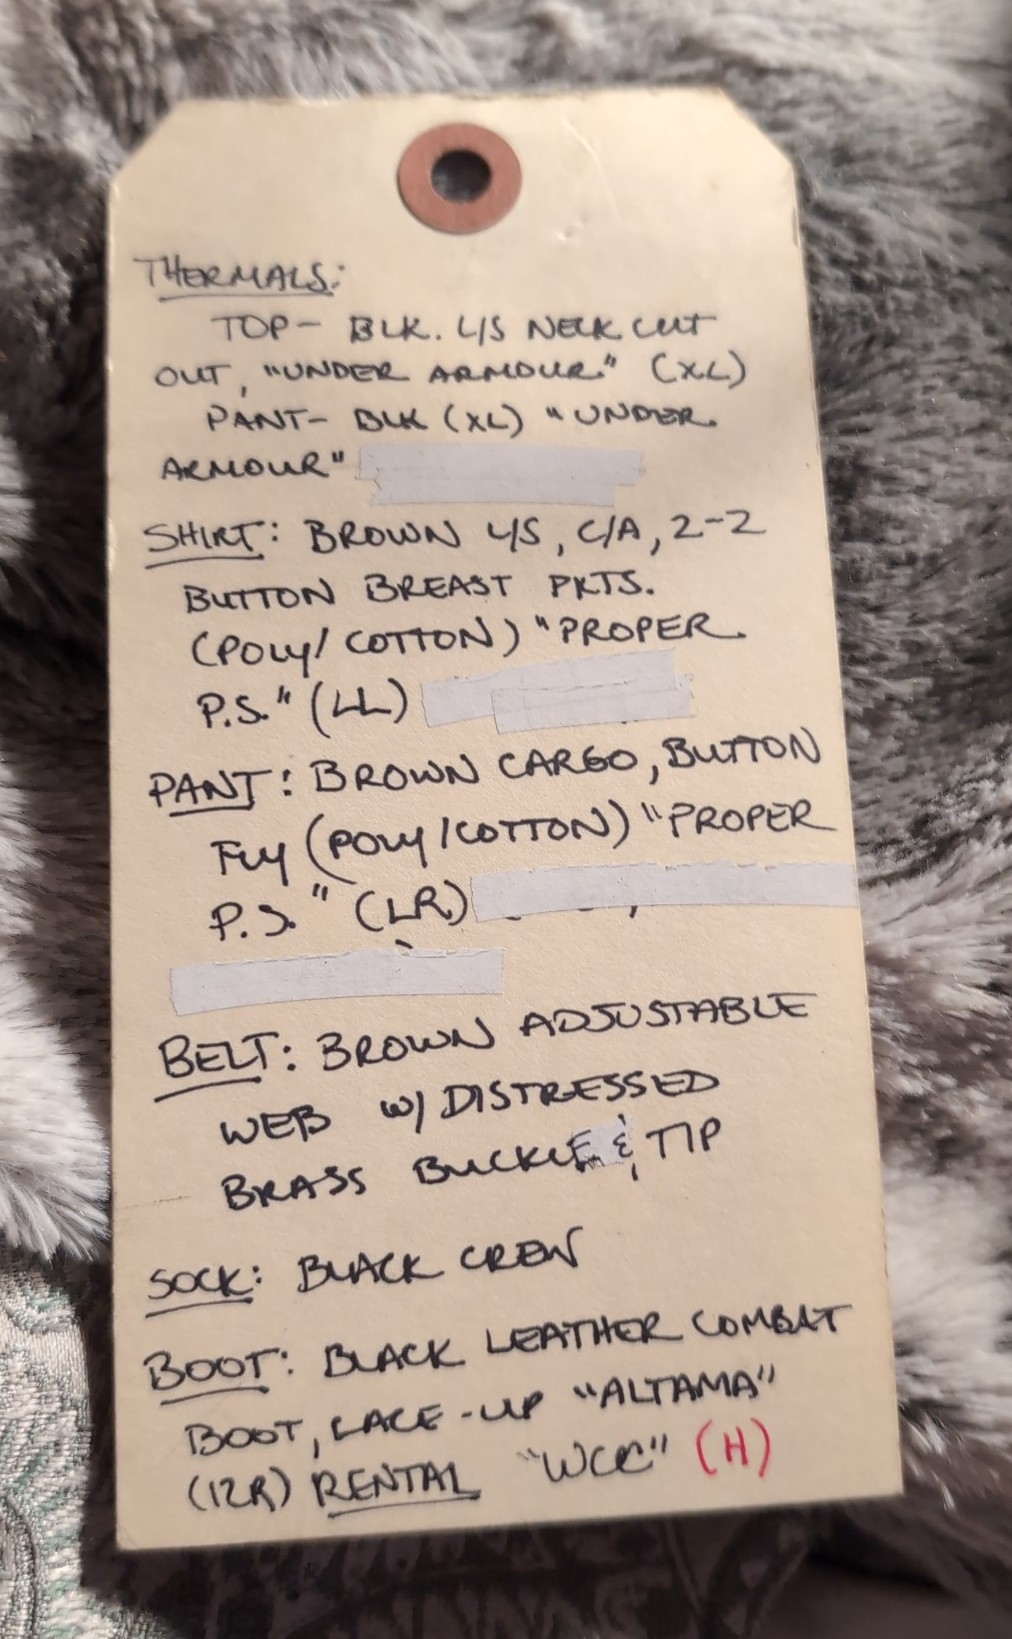 THERMALS:
TOP- BLK. L/S NECK CUT
OUT, "UNDER ARMOUR" (XL)
PANT- BLK (XL) "UNDER
ARMOUR"
SHIRT: BROWN L/S, C/A, 2-2
BUTTON BREAST PKTS.
(POLY/COTTON) "PROPER
P.S." (LL)
PANT: BROWN CARGO, BUTTON
FLY (POLY/COTTON) "PROPER
P.S." (LR)
BELT: BROWN ADJUSTABLE
WEB W/ DISTRESSED
BRASS BUCKLE & TIP
SOCK: BLACK CREW
BOOT: BLACK LEATHER COMBAT
BOOT, LACE-UP "ALTAMA"
(12R) RENTAL "WCC" (H)